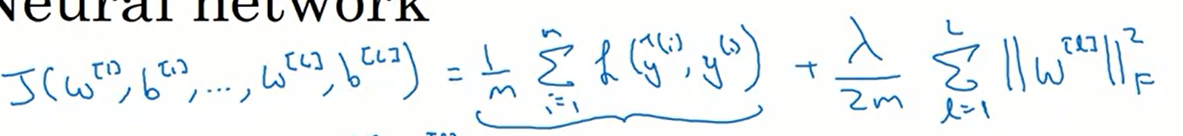 Neural network
J(w^[1], b^[1], ..., w^[L], b^[L]) = 1/m ∑_{i=1}^{n} L(ŷ^(i), y^(i)) + λ/2m ∑_{l=1}^{L} ||w^[l]||_F^2